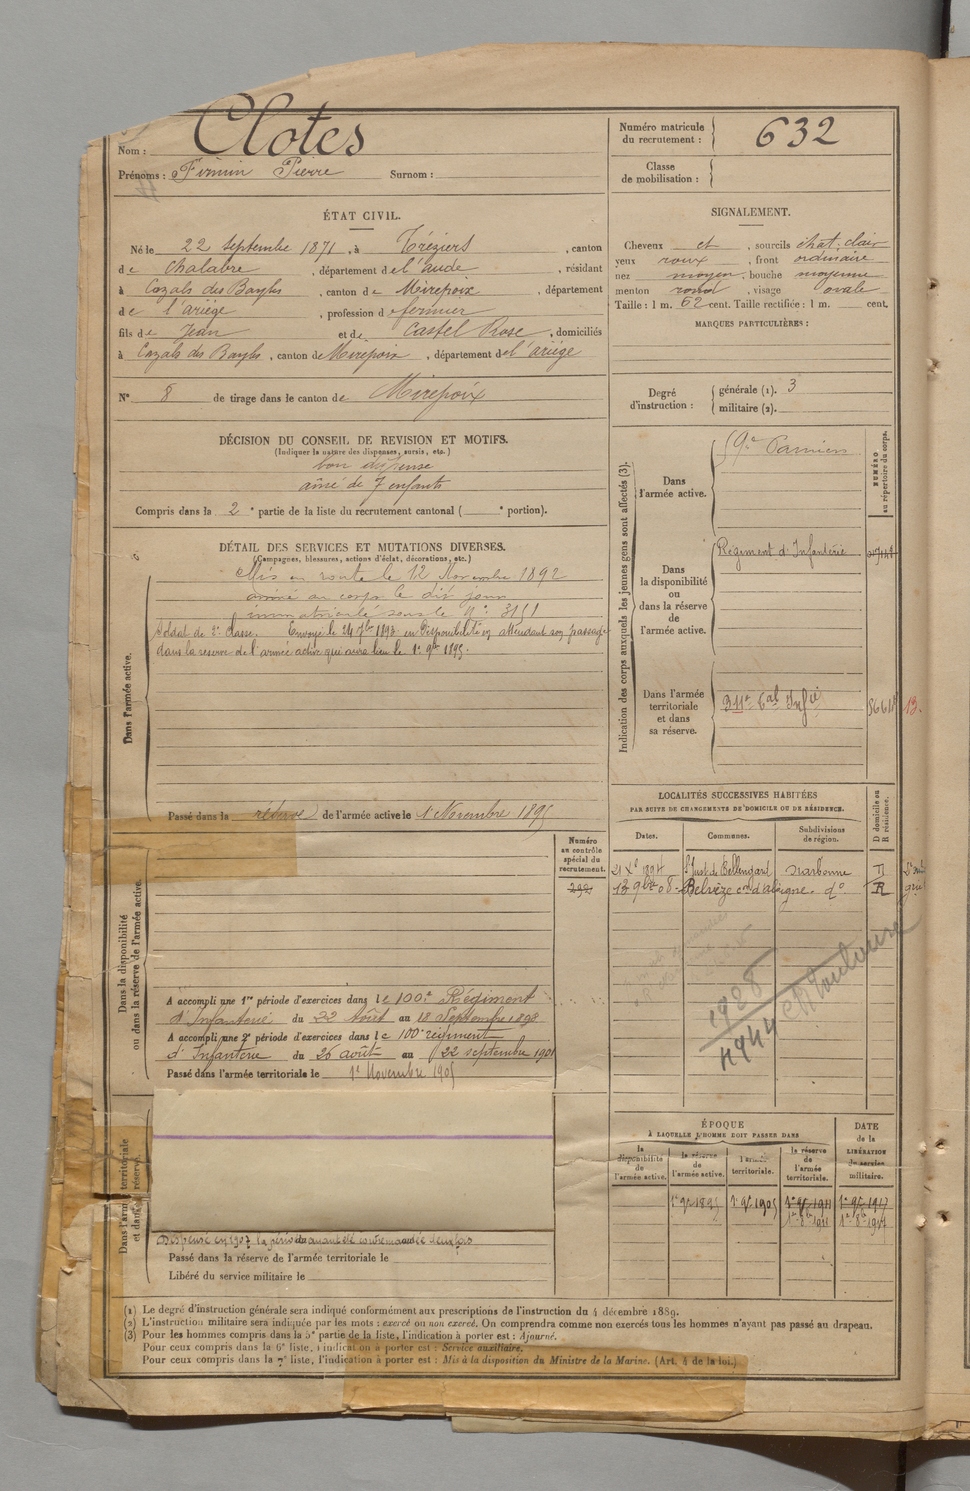 Nom : Clotes
Prénoms : Firmin Pierre Surnom :
Numéro matricule du recrutement : 632
Classe de mobilisation :
ÉTAT CIVIL.
Né le 22 Septembre 1871, à Tréziers, canton
de Chalabre, département de l'aude, résidant
à Cazals des Bayles, canton de Mirepoix, département
de l'ariège, profession de fermier
fils de Jean et de Castel Rose, domiciliés
à Cazals des Bayles, canton de Mirepoix, département de l'ariége
N° 8 de tirage dans le canton de Mirepoix
SIGNALEMENT.
Cheveux et, sourcils chat. clair
yeux roux, front ordinaire
nez moyen, bouche moyenne
menton rond, visage ovale
Taille : 1 m. 62 cent. Taille rectifiée : 1 m. cent.
MARQUES PARTICULIÈRES :
Degré d'instruction :
générale (1). 3
militaire (2).
DÉCISION DU CONSEIL DE REVISION ET MOTIFS.
(Indiquer la nature des dispenses, sursis, etc.)
bon dispense
aîné de 7 enfants
Compris dans la 2e partie de la liste du recrutement cantonal ( e portion).
DÉTAIL DES SERVICES ET MUTATIONS DIVERSES.
(Campagnes, blessures, actions d'éclat, décorations, etc.)
Dans l'armée active.
Mis en route le 12 Novembre 1892
arrivé au corps le dit jour
immatriculé sous le N°: 3151
Soldat de 2e classe. Envoyé le 24 7bre 1893 en disponibilité en attendant son passage
dans la réserve de l'armée active qui aura lieu le 1er 9bre 1895.
Passé dans la réserve de l'armée active le 1er Novembre 1895
Indication des corps auxquels les jeunes gens sont affectés (3).
NUMÉRO au répertoire du corps.
Dans l'armée active.
59e Pamiers
Dans la disponibilité ou dans la réserve de l'armée active.
Régiment d'Infanterie
Dans l'armée territoriale et dans sa réserve.
13.
LOCALITÉS SUCCESSIVES HABITÉES
PAR SUITE DE CHANGEMENTS DE DOMICILE OU DE RÉSIDENCE.
Dates. Communes. Subdivisions de région. D domicile ou R résidence.
21 Xbre 1894 St Just de Bellengard Narbonne
13 9bre 08 Belvèze con d'Alaigne. do R
1928
Toulouse
Dans la disponibilité ou dans la réserve de l'armée active.
Numéro au contrôle spécial du recrutement.
A accompli une 1re période d'exercices dans le 100e Régiment
d'Infanterie du 22 Août au 18 Septembre 1898
A accompli une 2e période d'exercices dans le 100e régiment
d'Infanterie du 26 août au 22 septembre 1901
Passé dans l'armée territoriale le 1er Novembre 1905
Dans l'armée territoriale et dans sa réserve.
Dispensé en 1907
Passé dans la réserve de l'armée territoriale le
Libéré du service militaire le
ÉPOQUE
À LAQUELLE L'HOMME DOIT PASSER DANS
la disponibilité de l'armée active. la réserve de l'armée active. l'armée territoriale. la réserve de l'armée territoriale.
DATE de la LIBÉRATION du service militaire.
1er 9bre 1895 1er 9bre 1905 1er 9bre 1911 1er 9bre 1917
1er 8bre 1911 1er 8bre 1917
(1) Le degré d'instruction générale sera indiqué conformément aux prescriptions de l'instruction du 4 décembre 1889.
(2) L'instruction militaire sera indiquée par les mots : exercé ou non exercé. On comprendra comme non exercés tous les hommes n'ayant pas passé au drapeau.
(3) Pour les hommes compris dans la 5e partie de la liste, l'indication à porter est : Ajourné.
Pour ceux compris dans la 6e liste, l'indication à porter est : Service auxiliaire.
Pour ceux compris dans la 7e liste, l'indication à porter est : Mis à la disposition du Ministre de la Marine. (Art. 4 de la loi.)